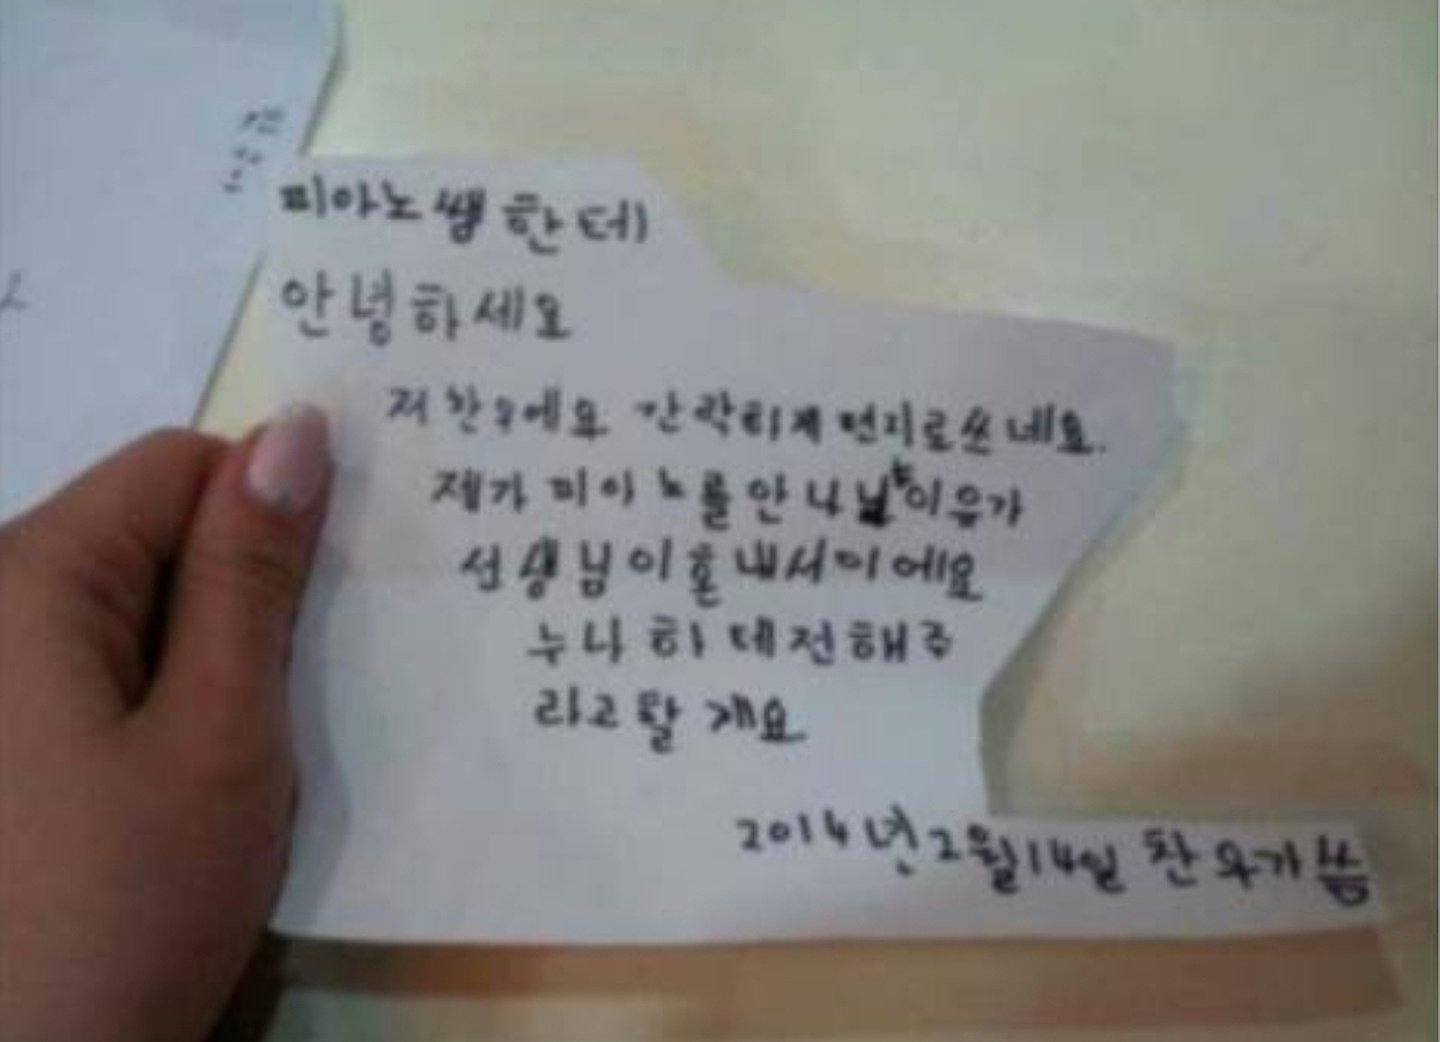 피아노 쌤 한테
안녕하세요
저 찬우에요 간략히게 편지로쓰네요.
제가 피아노를 안 나닌 이유가
선생님이 혼내서이에요
누나 하테전해주
라고할게요
2014년2월14일 찬우가씀